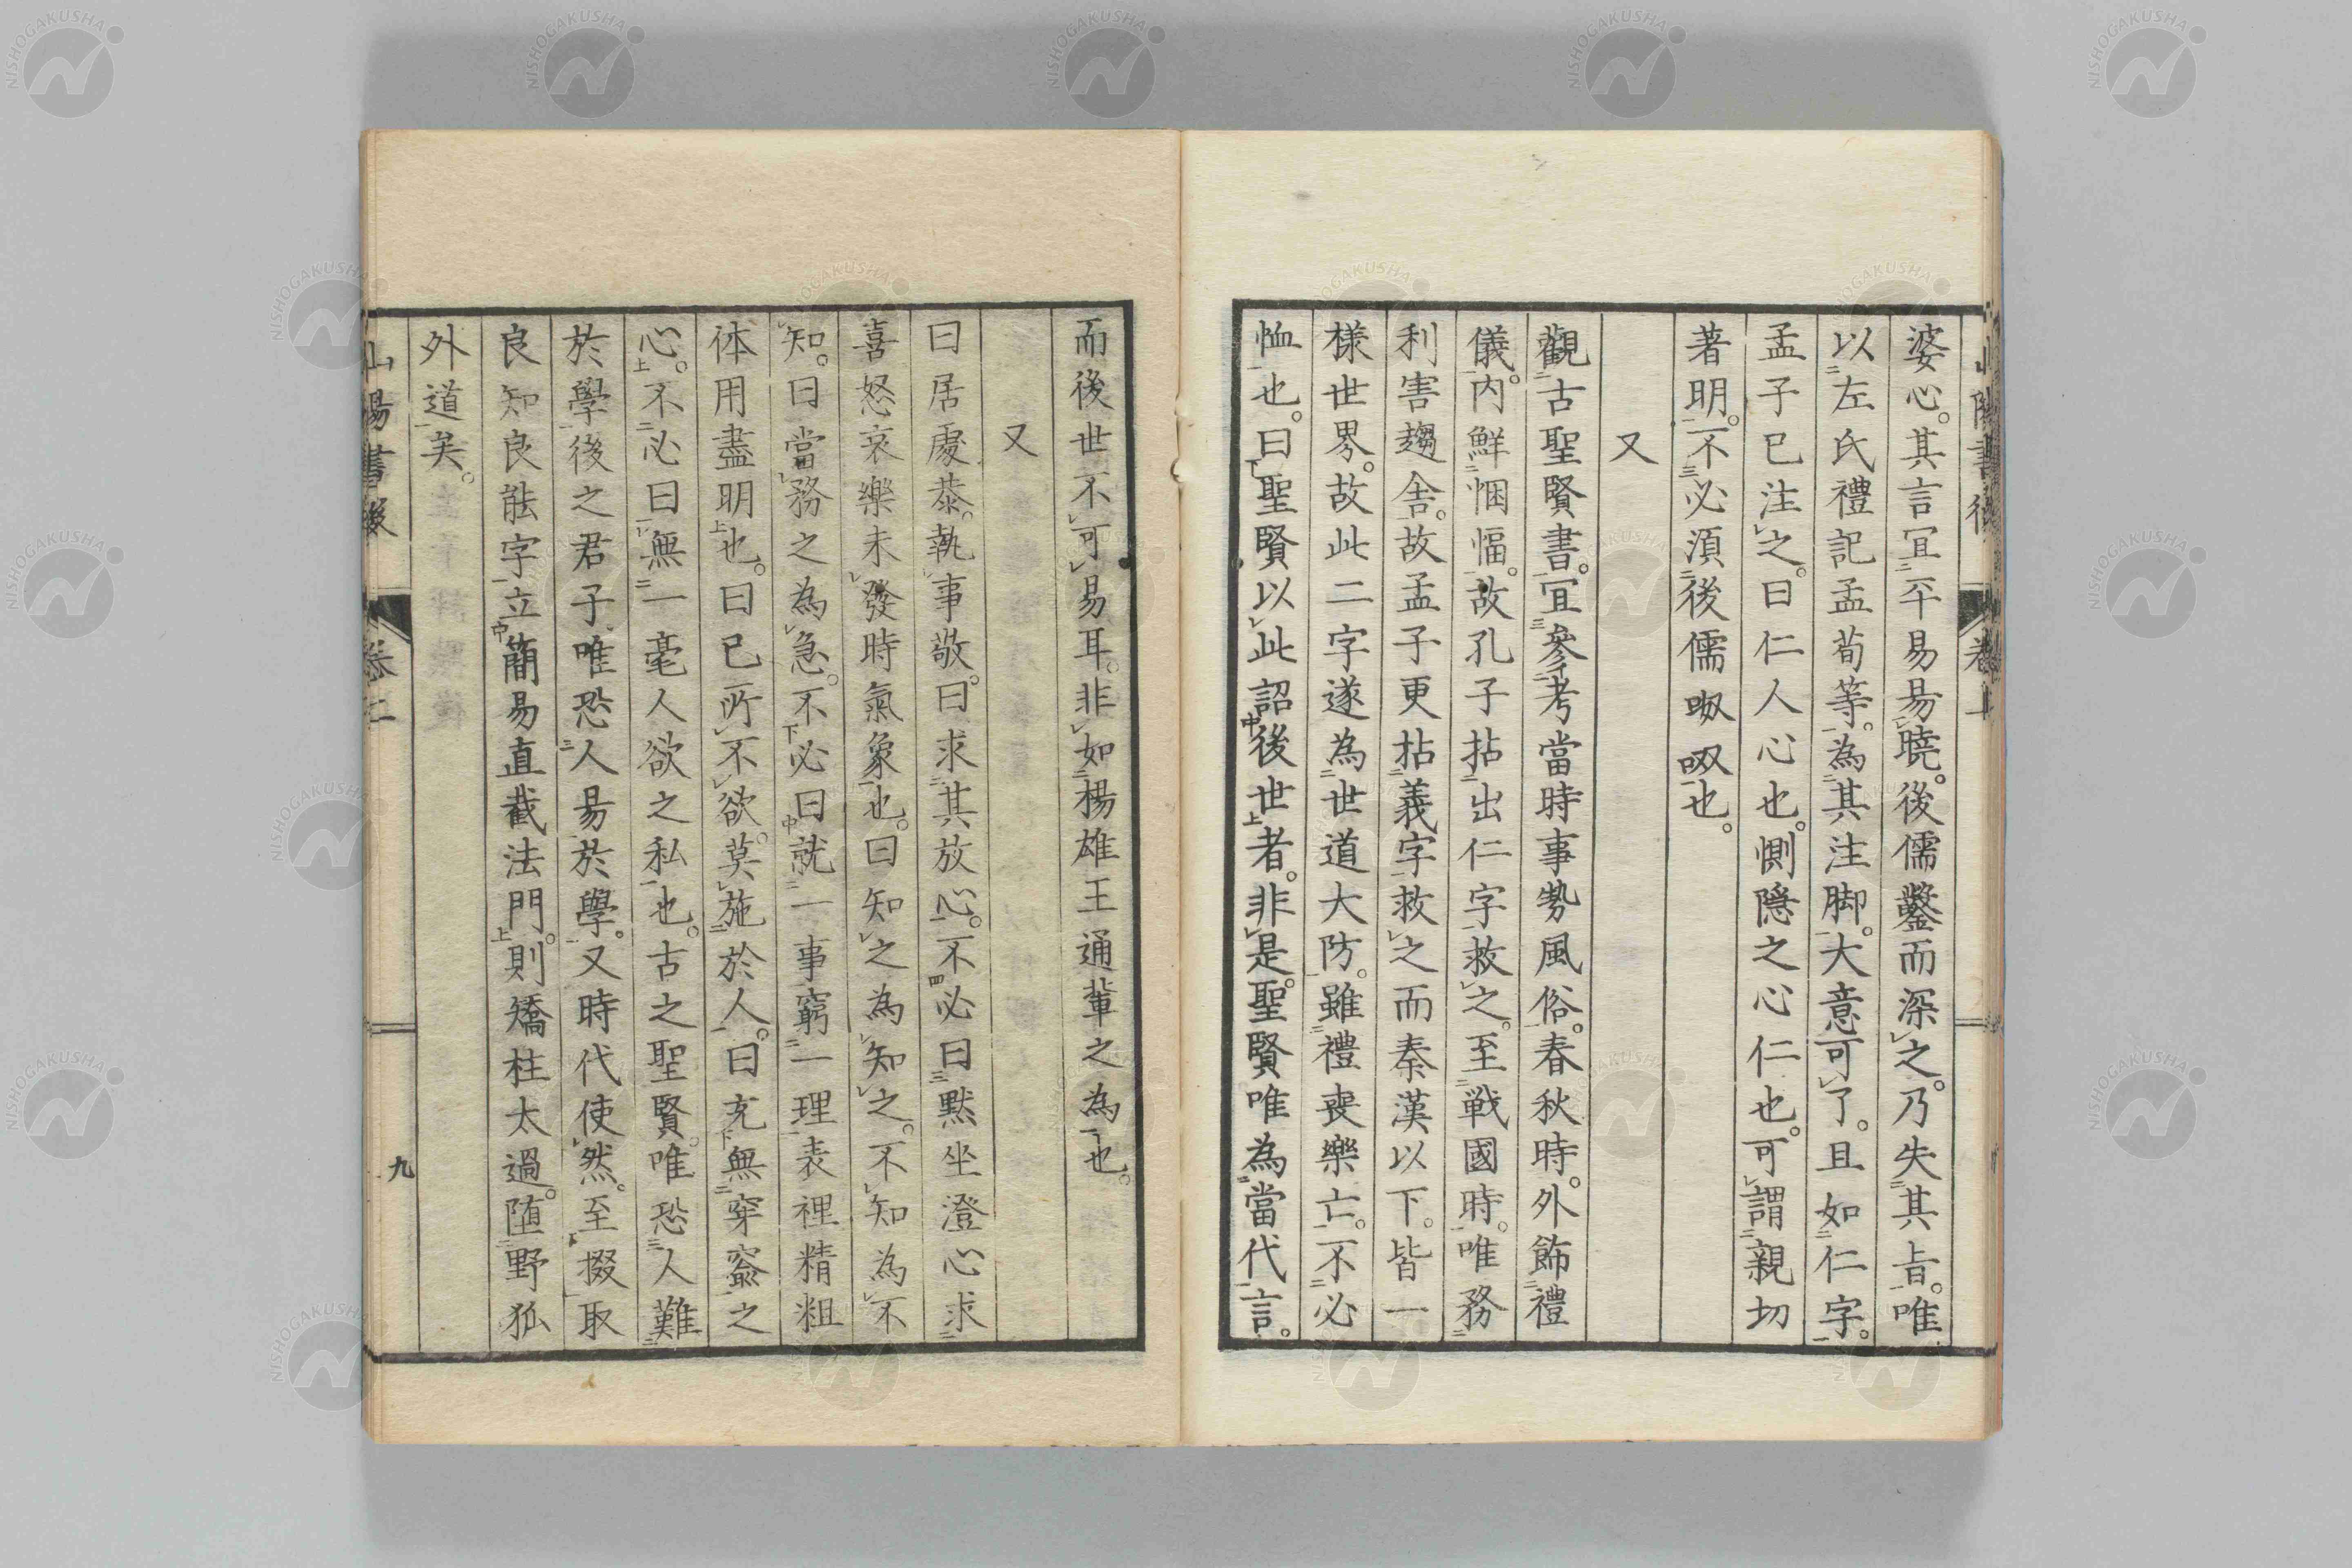 婆心。其言宜平易易曉。後儒鑿而深之。乃失其旨。唯
以左氏禮記孟荀等。為其注脚。大意可了。且如仁字。
孟子已注之。曰仁人心也。惻隱之心仁也。可謂親切
著明。不必須後儒呶呶也。
又
觀古聖賢書。宜參考當時事勢風俗。春秋時。外飾禮
儀。内鮮悃愊。故孔子拈出仁字救之。至戦國時。唯務
利害趨舍。故孟子更拈義字救之而秦漢以下。皆一
樣世界。故此二字遂為世道大防。雖禮喪樂亡。不必
恤也。曰聖賢以此詔後世者。非是。聖賢唯為當代言。
而後世不可易耳。非如楊雄王通輩之為也。
又
曰居處恭。執事敬。曰求其放心。不必曰黙坐澄心求
喜怒哀樂未發時氣象也。曰知之為知之。不知為不
知。曰當務之為急。不必曰就一事窮一理表裡精粗
体用盡明也。曰已所不欲。莫施於人。曰充無穿窬之
心。不必曰無一毫人欲之私也。古之聖賢。唯恐人難
於學。後之君子唯恐人易於學。又時代使然。至掇取
良知良能字立簡易直截法門。則矯枉太過。堕野狐
外道矣。
山陽書後
卷二
九
NISHOGAKUSHA